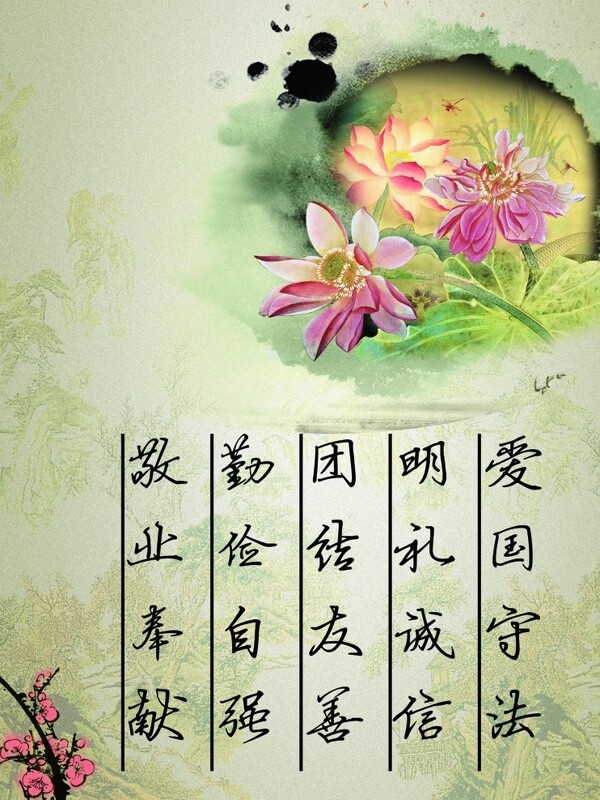 爱国守法
明礼诚信
团结友善
勤俭自强
敬业奉献